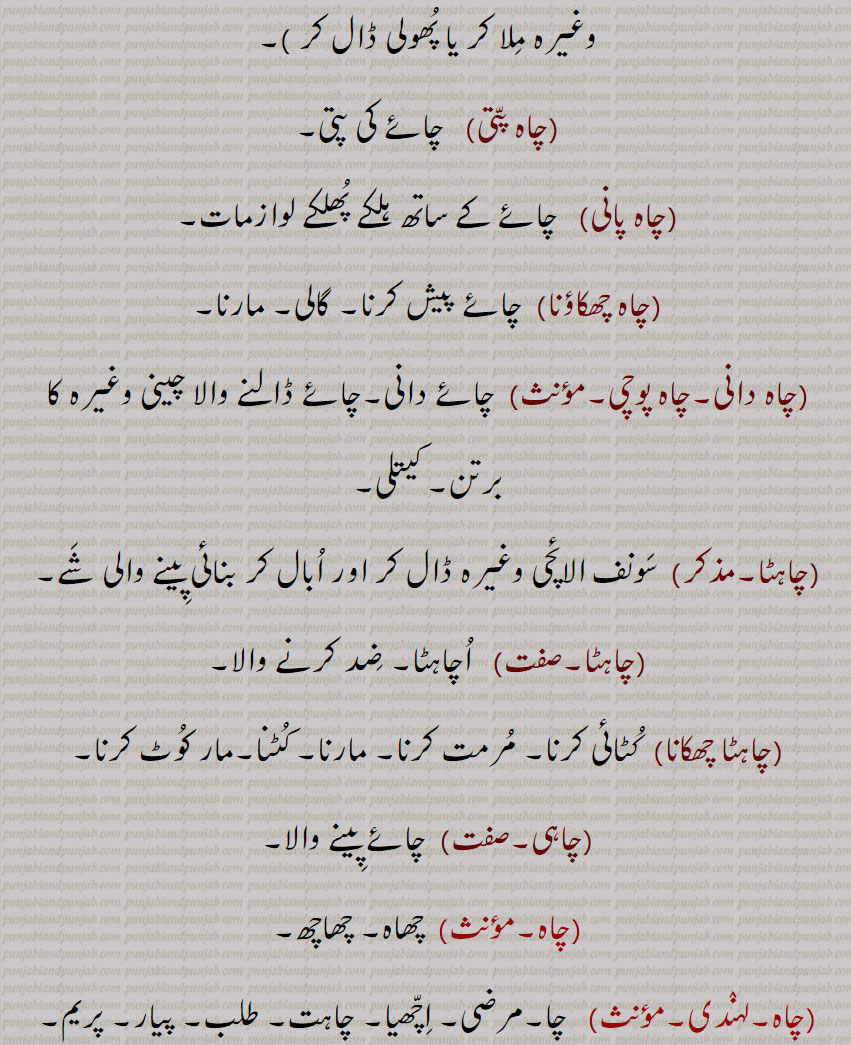 وغیرہ مِلا کر یا پُھولی ڈال کر )۔
(چاہ پتّی) چائے کی پتی۔
(چاہ پانی) چائے کے ساتھ ہلکے پُھلکے لوازمات۔
(چاہ چھکاؤنا) چائے پیش کرنا۔ گالی۔ مارنا۔
(چاہ دانی۔چاہ پوچی۔مؤنث) چائے دانی۔چائے ڈالنے والا چینی وغیرہ کا
برتن۔ کیتلی۔
(چاہٹا۔مذکر) سَونف الائچی وغیرہ ڈال کر اور اُبال کر بنائی پِینے والی شَے۔
(چاہٹا۔صفت) اُچاہٹا۔ ضِد کرنے والا۔
(چاہٹا چھکانا) کُٹائی کرنا۔ مُرمت کرنا۔ مارنا۔ کُٹنا۔مار کوُٹ کرنا۔
(چاہی۔صفت) چائے پِینے والا۔
(چاہ۔مؤنث) چھاہ۔ چھاچھ۔
(چاہ۔لہنْدی۔مؤنث) چا۔مرضی۔ اِچّھیا۔ چاہت۔ طلب۔ پیار۔ پریم۔
punjabiandpunjab.com